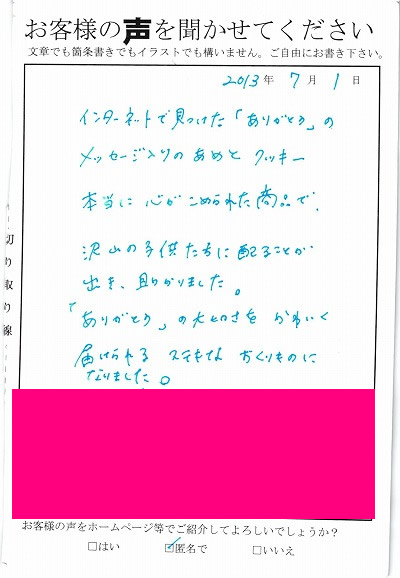 お客様の声を聞かせてください
文章でも箇条書きでもイラストでも構いません。ご自由にお書き下さい。
2013年 7月 1日
インターネットで見つけた「ありがとう」の
メッセージ入りのあめと クッキー
本当に 心が こめられた商品で、
沢山の子供たちに配ることが
出き、助かりました。
「ありがとう」の大切さを かわいく
届けられる ステキな おくりものに
なりました。
切り取り線
お客様の声をホームページ等でご紹介してよろしいでしょうか?
□はい ☑匿名で □いいえ